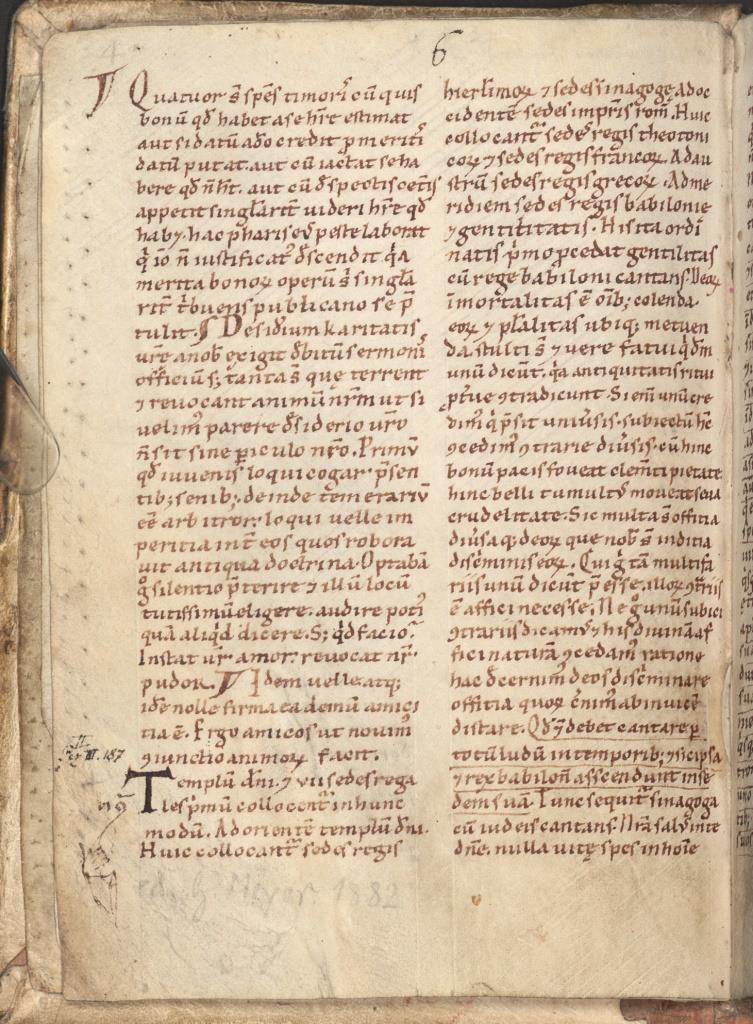 6
Quatuor s̄ spēs timoris cū quis
bonū qđ habet a se hr̄e estimat
aut si datū a dō credit ꝓ meritis
datū putat. aut cū iactat se ha
bere qđ ñ hт̄. aut cū despectis ceteris
appetit singlarit̄ uideri hr̄e qđ
merita bonoꝝ operū s̄ singla
rit̄ t̄buens publicano se p̄
tulit. Desidium karitatis
ur̄e a nob̄ exigit debitū sermonis
officiūs; tanta s̄ que terrent
⁊ reuocant animū nr̄m ut si
uelimꝰ parere desiderio ur̄o
ñ sit sine periculo nr̄o. Primū
qđ iuuenis loqui cogar p̄sen
tib; senib; deinde temerariū
eē arbitror loqui uelle im
peritia int̄ eos quos robora
uit antiqua doctrina. Optabā
silentio p̄terire ⁊ illū locū
tutissimū eligere. audire potiꝰ
quā aliqd dicere. S; qđ facio?
Instat ur̄ amor. reuocat nr̄
pudor. Idem uelle atq;
idē nolle firma ea demū amici
tia ē. Ergo amicos ut nouimꝰ
ꝯiunctio animoꝝ facit.
Templū dn̄i. ⁊ vii sedes rega
les p̄mū collocent̄ in hunc
modū. Ad orientē templū dn̄i.
Huic collocant̄ sedes regis
hierl̄imoꝝ ⁊ sedes sinagogę. Ad oc
cidentē sedes impr̄is rom̄. Huic
collocant̄ sedes regis theotoni
coꝝ ⁊ sedes regis francoꝝ. Ad au
strū sedes regis grecoꝝ. Ad me
ridiem sedes regis babilonie
⁊ gentilitatis. His ita ordi
natis p̄mo procedat gentilitas
cū rege babiloni cantans. Deoꝝ
īmortalitas ē oīb; colenda.
eoꝝ ⁊ pl̄alitas ubiq; metuen
da. stulti s̄ ⁊ uere fatui qui dm̄
unū dicūt. qa antiquitatis ritui
ꝓterue ꝯtradicunt. Si enī unū cre
dimꝰ qui p̄sit uniusis. subiectū hc̄
ꝯcedimꝰ ꝯtrarie diuersis. cū hinc
bonū pacis foueat clem̄ti pietate
hinc belli tumultꝰ moueat seua
crudelitate. Sic multa s̄ offitia
diūsaq; deoꝝ que nob̄ s̄ inditia
discriminis eoꝝ. Qui g̊ tā multifa
riis unū dicūt p̄ esse. alloꝝ ꝯtr̄iis
ē affici necesse. Ne g̊ unū subici
ꝯtrariis dicamꝰ ⁊ his diuinā af
fici naturā ꝯcedamꝰ ratione
hac decernimꝰ deos discriminare
offitia quoꝝ cernimꝰ ab inuicē
distare. Qđ ⁊ debet cantare per
totū ludū in temporib; ⁊ sic ipsa
⁊ rex babiloñ asscendunt in se
dem suā. Tunc sequit̄ sinagoga
cū iudeis cantans. Nr̄a salus in te
dn̄e. nulla uitę spes in hoīe
ed. G. Meyer. 1882